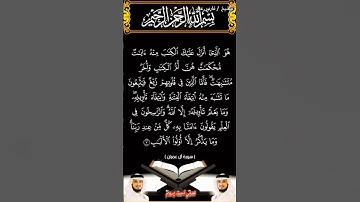 بسم الله الرحمن الرحيم
هُوَ ٱلَّذِىٓ أَنزَلَ عَلَيْكَ ٱلْكِتَٰبَ مِنْهُ ءَايَٰتٌ
مُّحْكَمَٰتٌ هُنَّ أُمُّ ٱلْكِتَٰبِ وَأُخَرُ
مُتَشَٰبِهَٰتٌ ۖ فَأَمَّا ٱلَّذِينَ فِى قُلُوبِهِمْ زَيْغٌ فَيَتَّبِعُونَ
مَا تَشَٰبَهَ مِنْهُ ٱبْتِغَآءَ ٱلْفِتْنَةِ وَٱبْتِغَآءَ تَأْوِيلِهِۦ ۗ
وَمَا يَعْلَمُ تَأْوِيلَهُۥٓ إِلَّا ٱللَّهُ ۗ وَٱلرَّٰسِخُونَ فِى
ٱلْعِلْمِ يَقُولُونَ ءَامَنَّا بِهِۦ كُلٌّ مِّنْ عِندِ رَبِّنَا ۗ
وَمَا يَذَّكَّرُ إِلَّآ أُو۟لُوا۟ ٱلْأَلْبَٰبِ ﴿٧﴾
( سورة آل عمران )